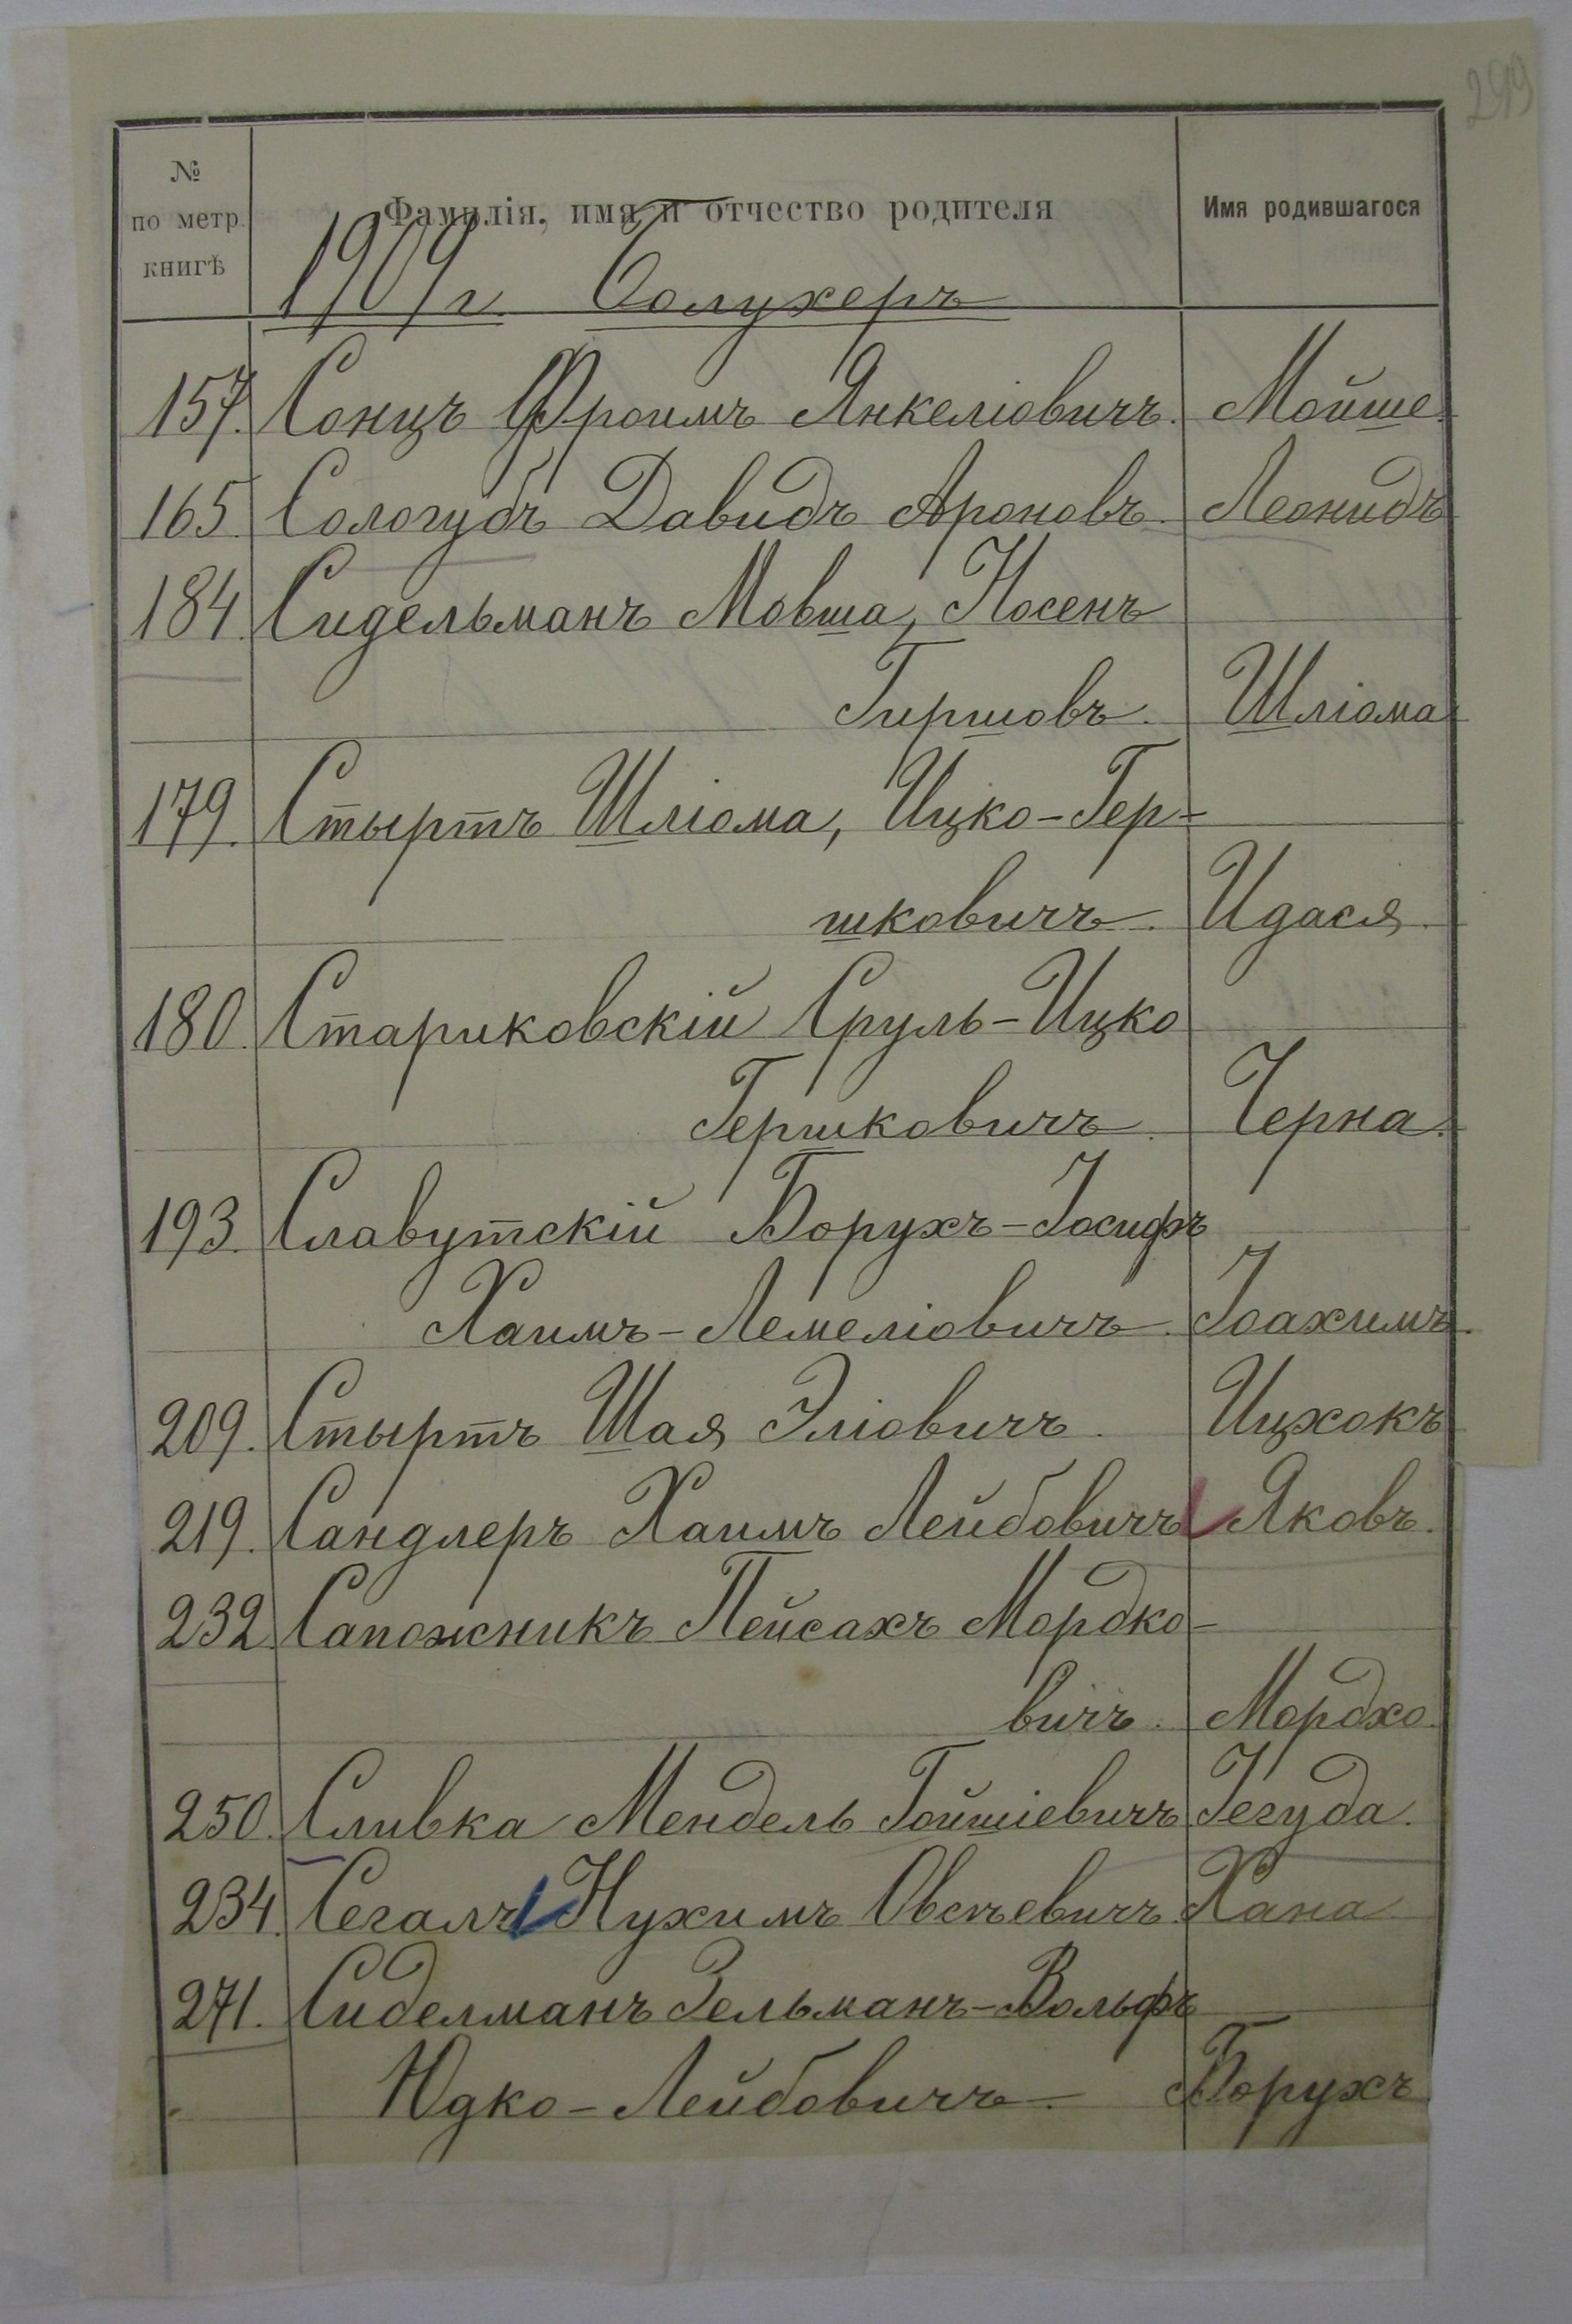 299
№ по метр. книгѣ
Фамилія, имя и отчество родителя
Имя родившагося
1909 г. Солухеръ
157. Сонцъ Фроимъ Янкеліовичъ. Мойше.
165. Сологубъ Давидъ Ароновъ. Леонидъ
184. Сидельманъ Мовша, Носенъ
Гиршовъ. Шліома
179. Стыртъ Шліома, Ицко-Гер-
шковичъ. Идася.
180. Стариковскій Сруль-Ицко
Гершковичъ. Черна.
193. Славутскій Борухъ-Іосифъ
Хаимъ-Лемеліовичъ. Іоахимъ.
209. Стыртъ Шая Эліовичъ. Ицхокъ
219. Сандлеръ Хаимъ Лейбовичъ Яковъ.
232 Сапожникъ Пейсахъ Мордко-
вичъ. Мордхо.
250. Сливка Мендель Гойшіевичъ Іегуда.
234. Сегалъ Нухимъ Овсѣевичъ. Хана
271. Сиделманъ Зельманъ-Вольфъ
Юдко-Лейбовичъ. Борухъ